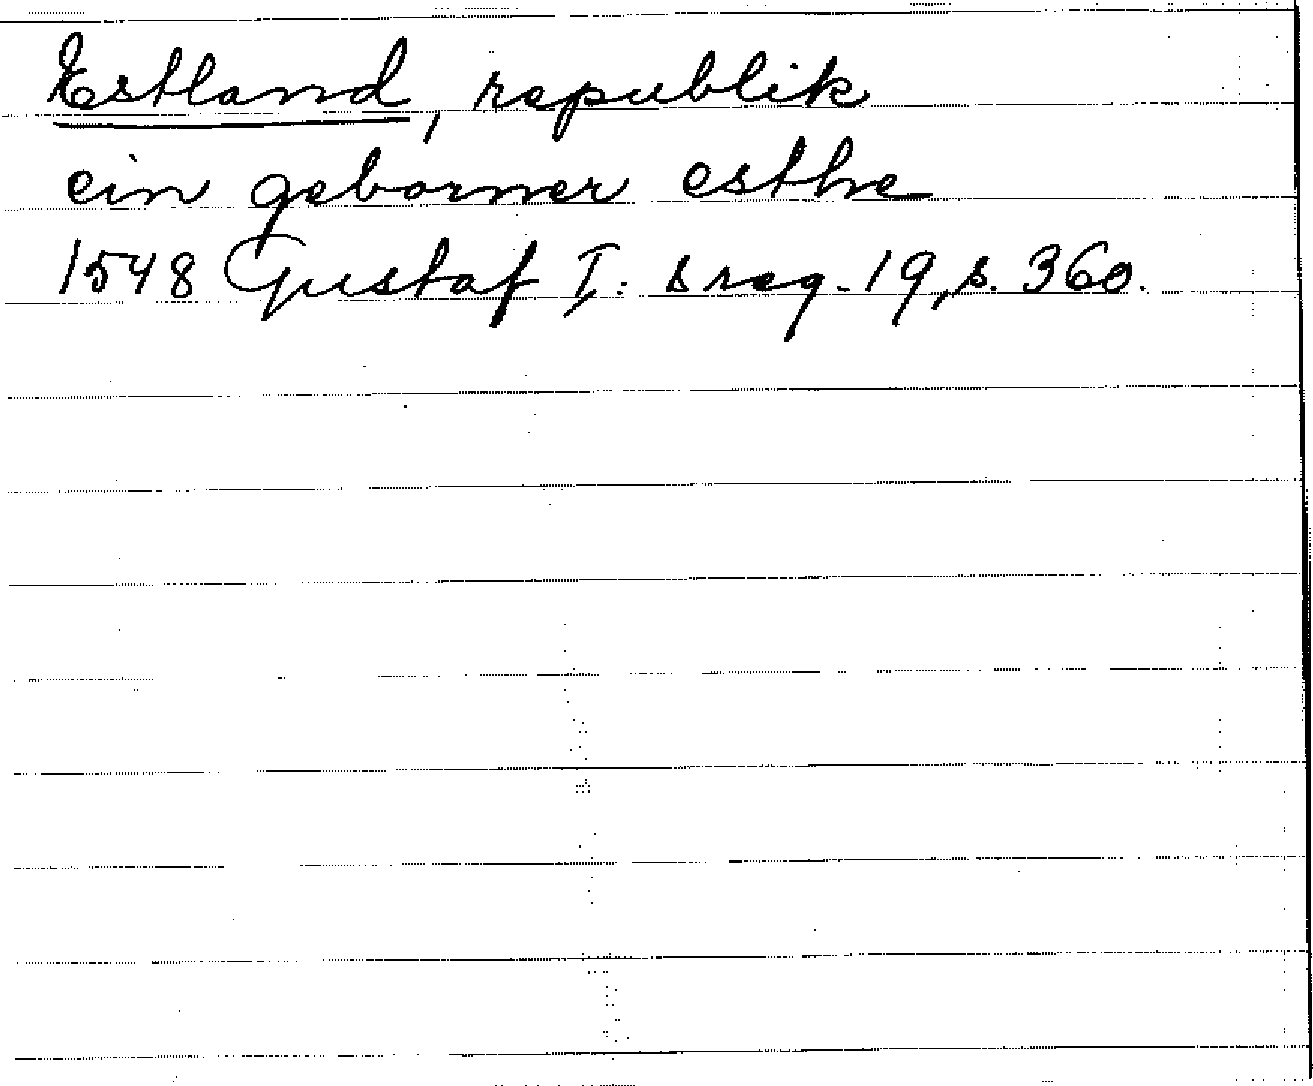 Estland, republik
ein geborner esthe
1548 Gustaf I:s reg. 19, s. 360.